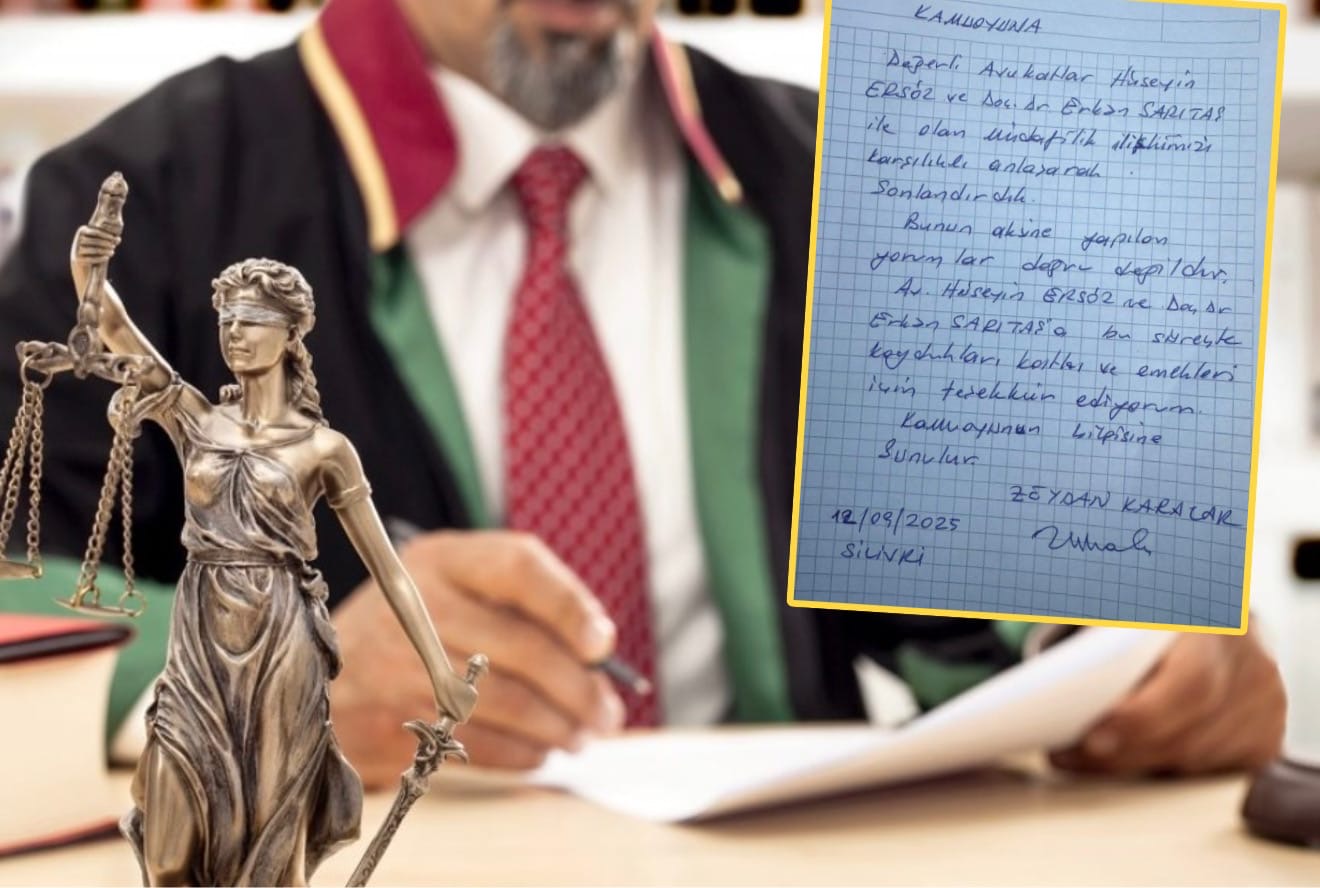 KAMUOYUNA
Değerli Avukatlar Hüseyin
ERSÖZ ve Doç. Dr Erkan SARITAŞ
ile olan müdafilik ilişkimizi
karşılıklı anlaşarak
Sonlandırdık.
Bunun aksine yapılan
yorumlar doğru değildir.
Av. Hüseyin ERSÖZ ve Doç. Dr
Erkan SARITAŞ'a bu süreçte
koydukları katkı ve emekleri
için teşekkür ediyorum.
Kamuoyunun bilgisine
Sunulur.
ZEYDAN KARALAR
12/09/2025
SİLİVRİ